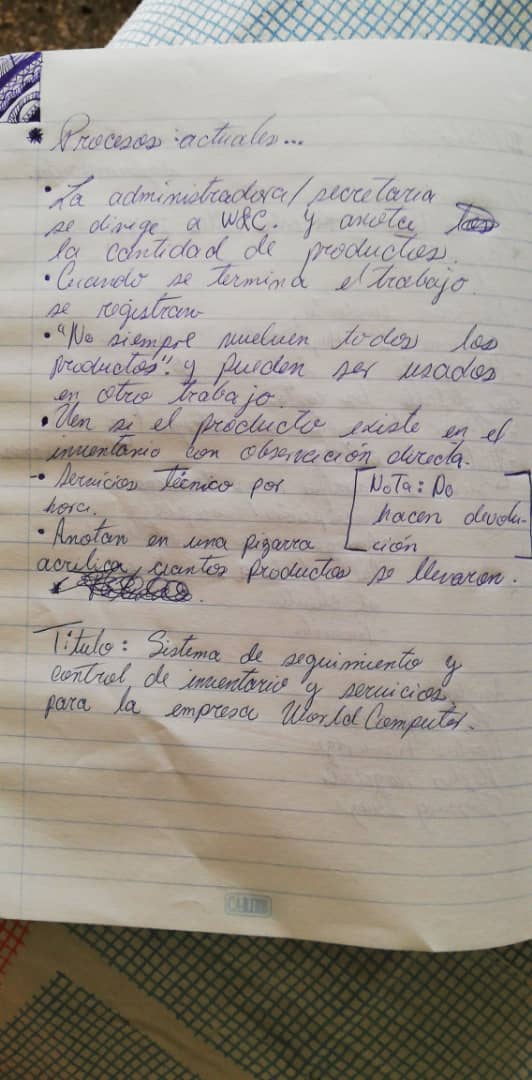 * Procesos actuales...
• La administradora/secretaria
se dirige a W&C. y anota
la cantidad de productos.
• Cuando se termina el trabajo
se registran
• "No siempre vuelven todos los
productos". y pueden ser usados
en otro trabajo.
• Ven si el producto existe en el
inventario con observación directa.
• Servicios Técnico por
hora.
NoTa: No
hacen devolu-
ción
• Anotan en una pizarra
acrilica, cuantos productos se llevaron.
Titulo: Sistema de seguimiento y
control de inventario y servicios,
para la empresa World Computer.